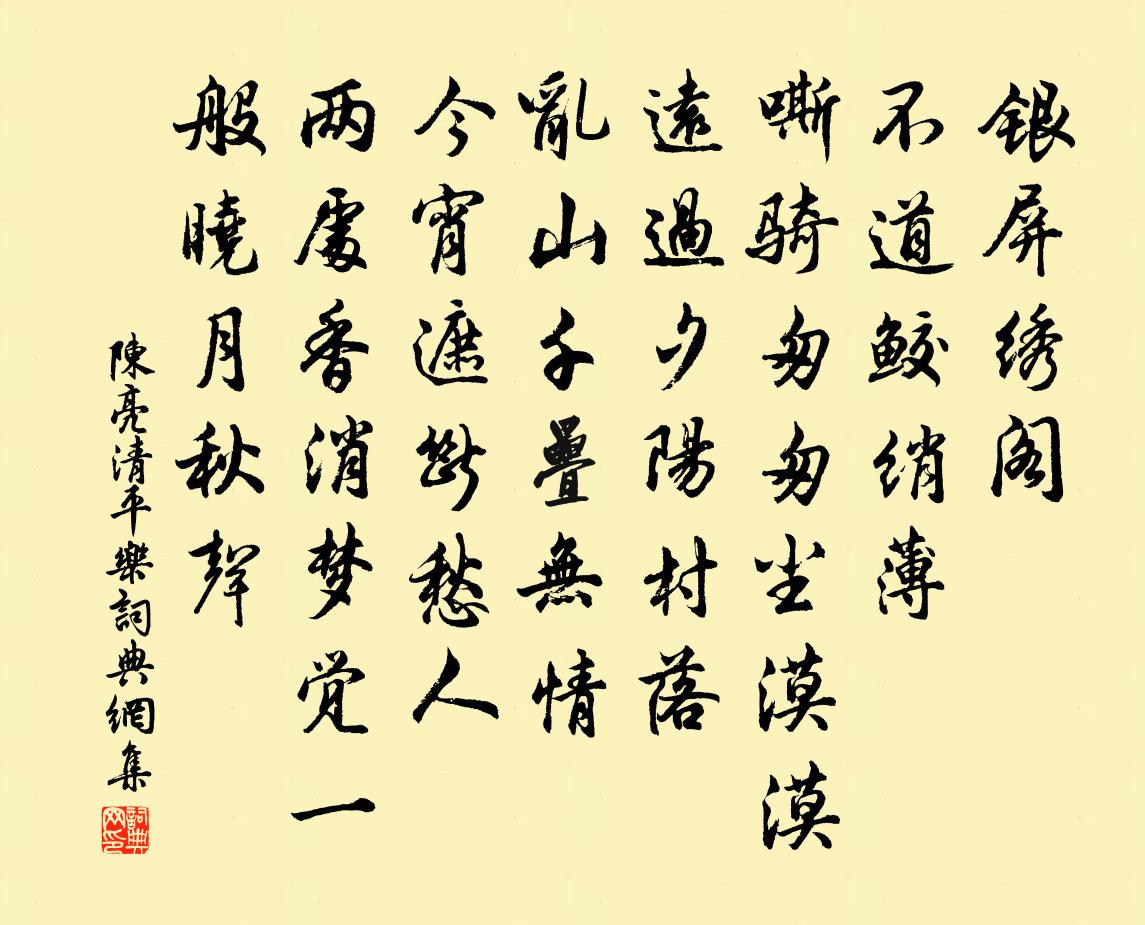 银屏绣阁
不道鲛绡薄
嘶骑匆匆尘漠漠
遠過夕陽村落
亂山千疊無情
今宵遮斷愁人
两處香消梦觉一
般曉月秋聲
陳亮清平樂詞典網集
詞典网印